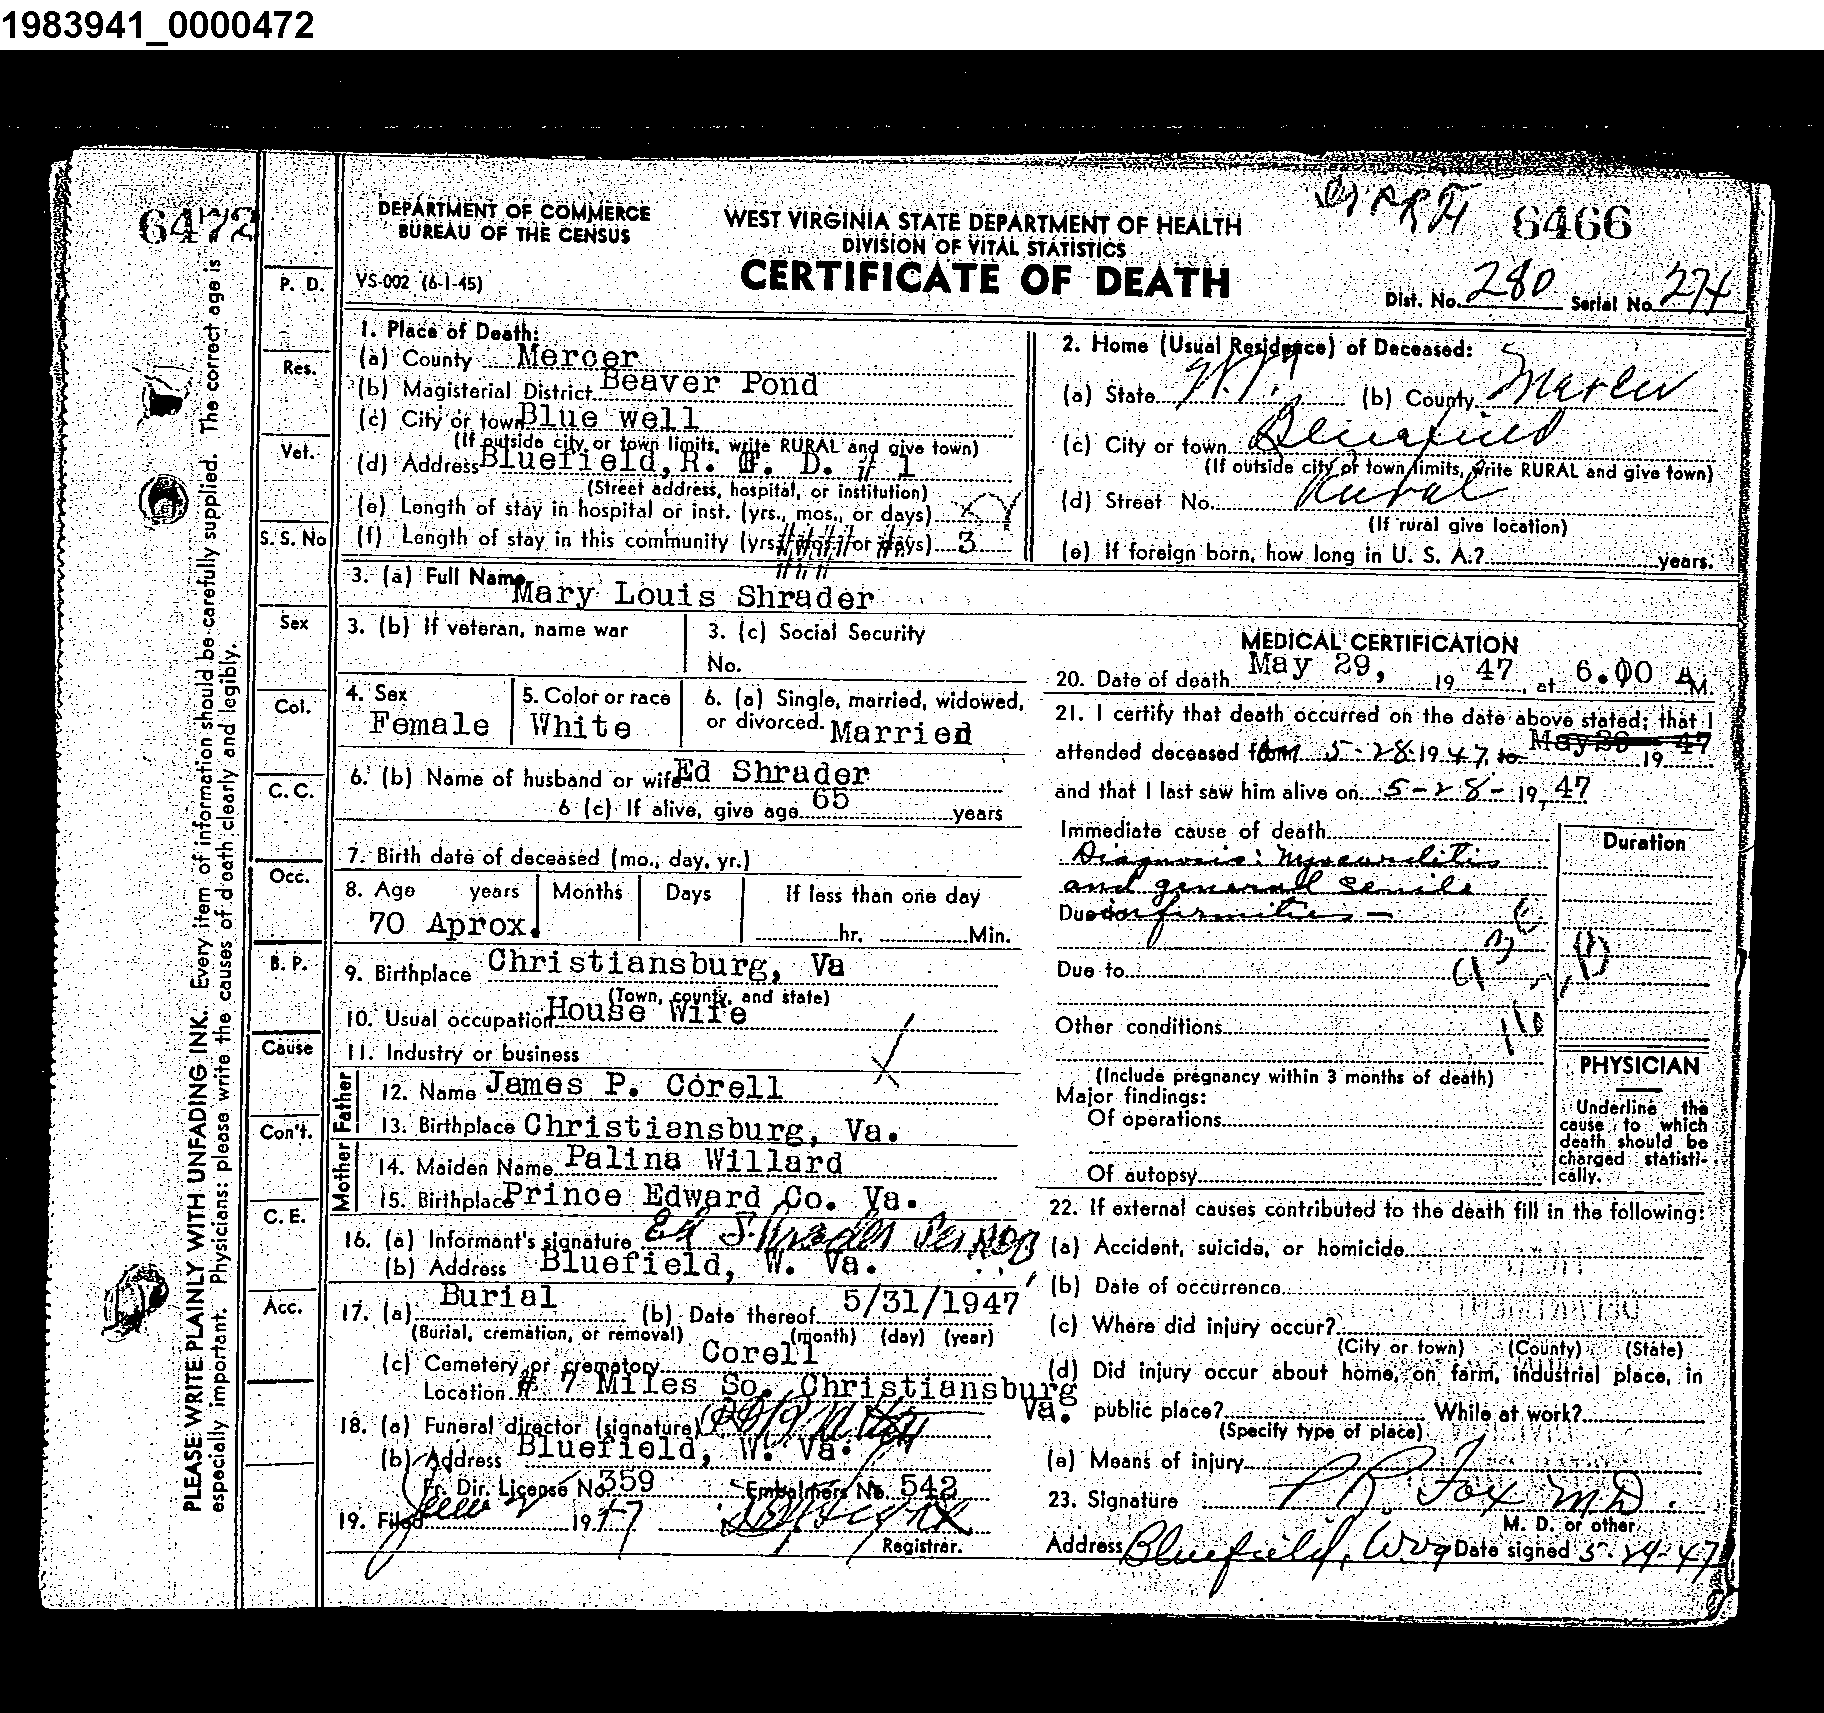 1983941_0000472
6472
DEPARTMENT OF COMMERCE
BUREAU OF THE CENSUS
VS-002 (6-1-45)
WEST VIRGINIA STATE DEPARTMENT OF HEALTH
DIVISION OF VITAL STATISTICS
CERTIFICATE OF DEATH
6466
Dist. No. 280 Serial No. 274
PLEASE WRITE PLAINLY WITH UNFADING INK. Every item of information should be carefully supplied. The correct age is
especially important. Physicians: please write the causes of death clearly and legibly.
P. D.
Res.
Vet.
S. S. No
Sex
Col.
C. C.
Occ.
B. P.
Cause
Con't.
C. E.
Acc.
1. Place of Death:
(a) County Mercer
(b) Magisterial District Beaver Pond
(c) City or town Blue well
(If outside city or town limits, write RURAL and give town)
(d) Address Bluefield, R. F. D. # 1
(Street address, hospital, or institution)
(e) Length of stay in hospital or inst. (yrs., mos., or days)
(f) Length of stay in this community (yrs., mos., or days) 3
2. Home (Usual Residence) of Deceased:
(a) State W. Va (b) County Mercer
(c) City or town Bluefield
(If outside city or town limits, write RURAL and give town)
(d) Street No. Rural
(If rural give location)
(e) If foreign born, how long in U. S. A.? years.
3. (a) Full Name Mary Louis Shrader
3. (b) If veteran, name war
3. (c) Social Security
No.
4. Sex
Female
5. Color or race
White
6. (a) Single, married, widowed,
or divorced. Married
6. (b) Name of husband or wife Ed Shrader
6 (c) If alive, give age 65 years
7. Birth date of deceased (mo., day, yr.)
8. Age years Months Days If less than one day
70 Aprox. hr. Min.
9. Birthplace Christiansburg, Va
(Town, county, and state)
10. Usual occupation House Wife
11. Industry or business
Father
12. Name James P. Corell
13. Birthplace Christiansburg, Va.
Mother
14. Maiden Name Palina Willard
15. Birthplace Prince Edward Co. Va.
16. (a) Informant's signature Ed Shrader
(b) Address Bluefield, W. Va.
17. (a) Burial (b) Date thereof 5/31/1947
(Burial, cremation, or removal) (month) (day) (year)
(c) Cemetery or crematory Corell
Location # 7 Miles So. Christiansburg
Va.
18. (a) Funeral director (signature)
(b) Address Bluefield, W. Va.
Fr. Dir. License No. 359 Embalmers No. 542
19. Filed June 2 1947
Registrar.
MEDICAL CERTIFICATION
20. Date of death May 29, 19 47, at 6.00 A M.
21. I certify that death occurred on the date above stated; that I
attended deceased from 5-28-1947, to May 28 19 47
and that I last saw him alive on 5-28-19, 47
Immediate cause of death
Diagnosis: Myocarditis
and general senile
Due to infirmities -
Due to
Other conditions
(Include pregnancy within 3 months of death)
Major findings:
Of operations
Of autopsy
Duration
PHYSICIAN
Underline the
cause to which
death should be
charged statisti-
cally.
22. If external causes contributed to the death fill in the following:
(a) Accident, suicide, or homicide
(b) Date of occurrence
(c) Where did injury occur?
(City or town) (County) (State)
(d) Did injury occur about home, on farm, industrial place, in
public place? While at work?
(Specify type of place)
(e) Means of injury
23. Signature P. R. Fox M D.
M. D. or other
Address Bluefield, W Va Date signed 5-29-47